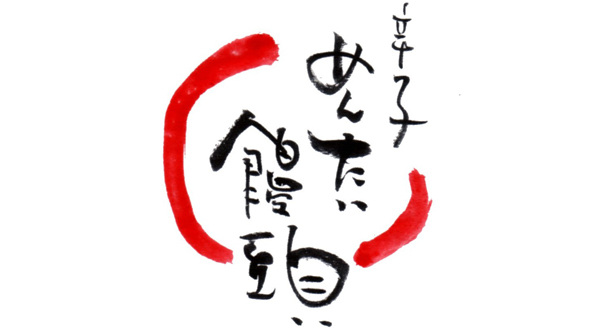 辛子
めんたい
饅頭